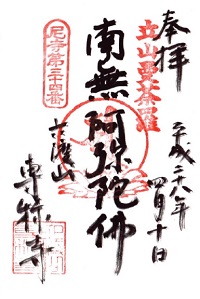 奉拝
平成二十八年
四月十日
立山曼荼羅
南無阿弥陀佛
尼寺第三十四番
専称寺